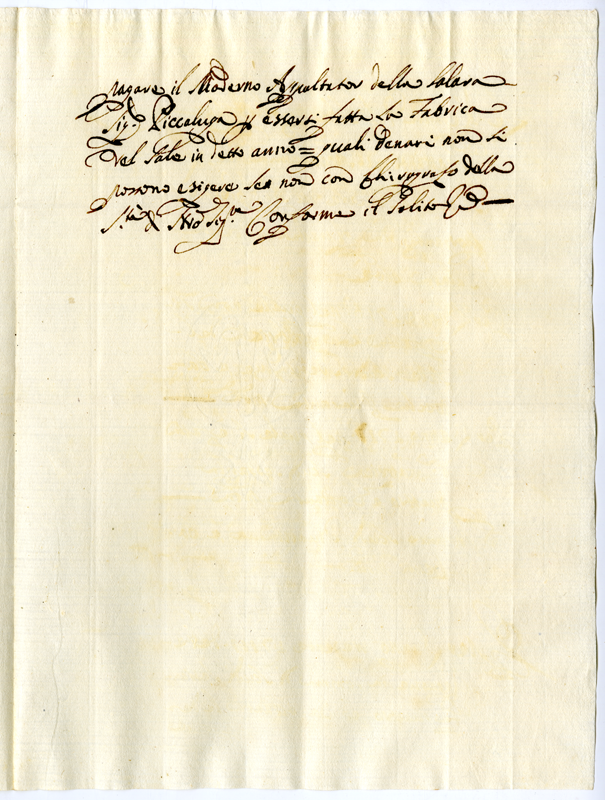 pagare il Moderno Apaltator della Salara
Sig.r Piccalupa p essersi fatta La Fabrica
del Sale in detto anno = quali denari non si
possono esigere se non con Chirografo della
S.tà di N.ro Sig.re Conforme il Solito